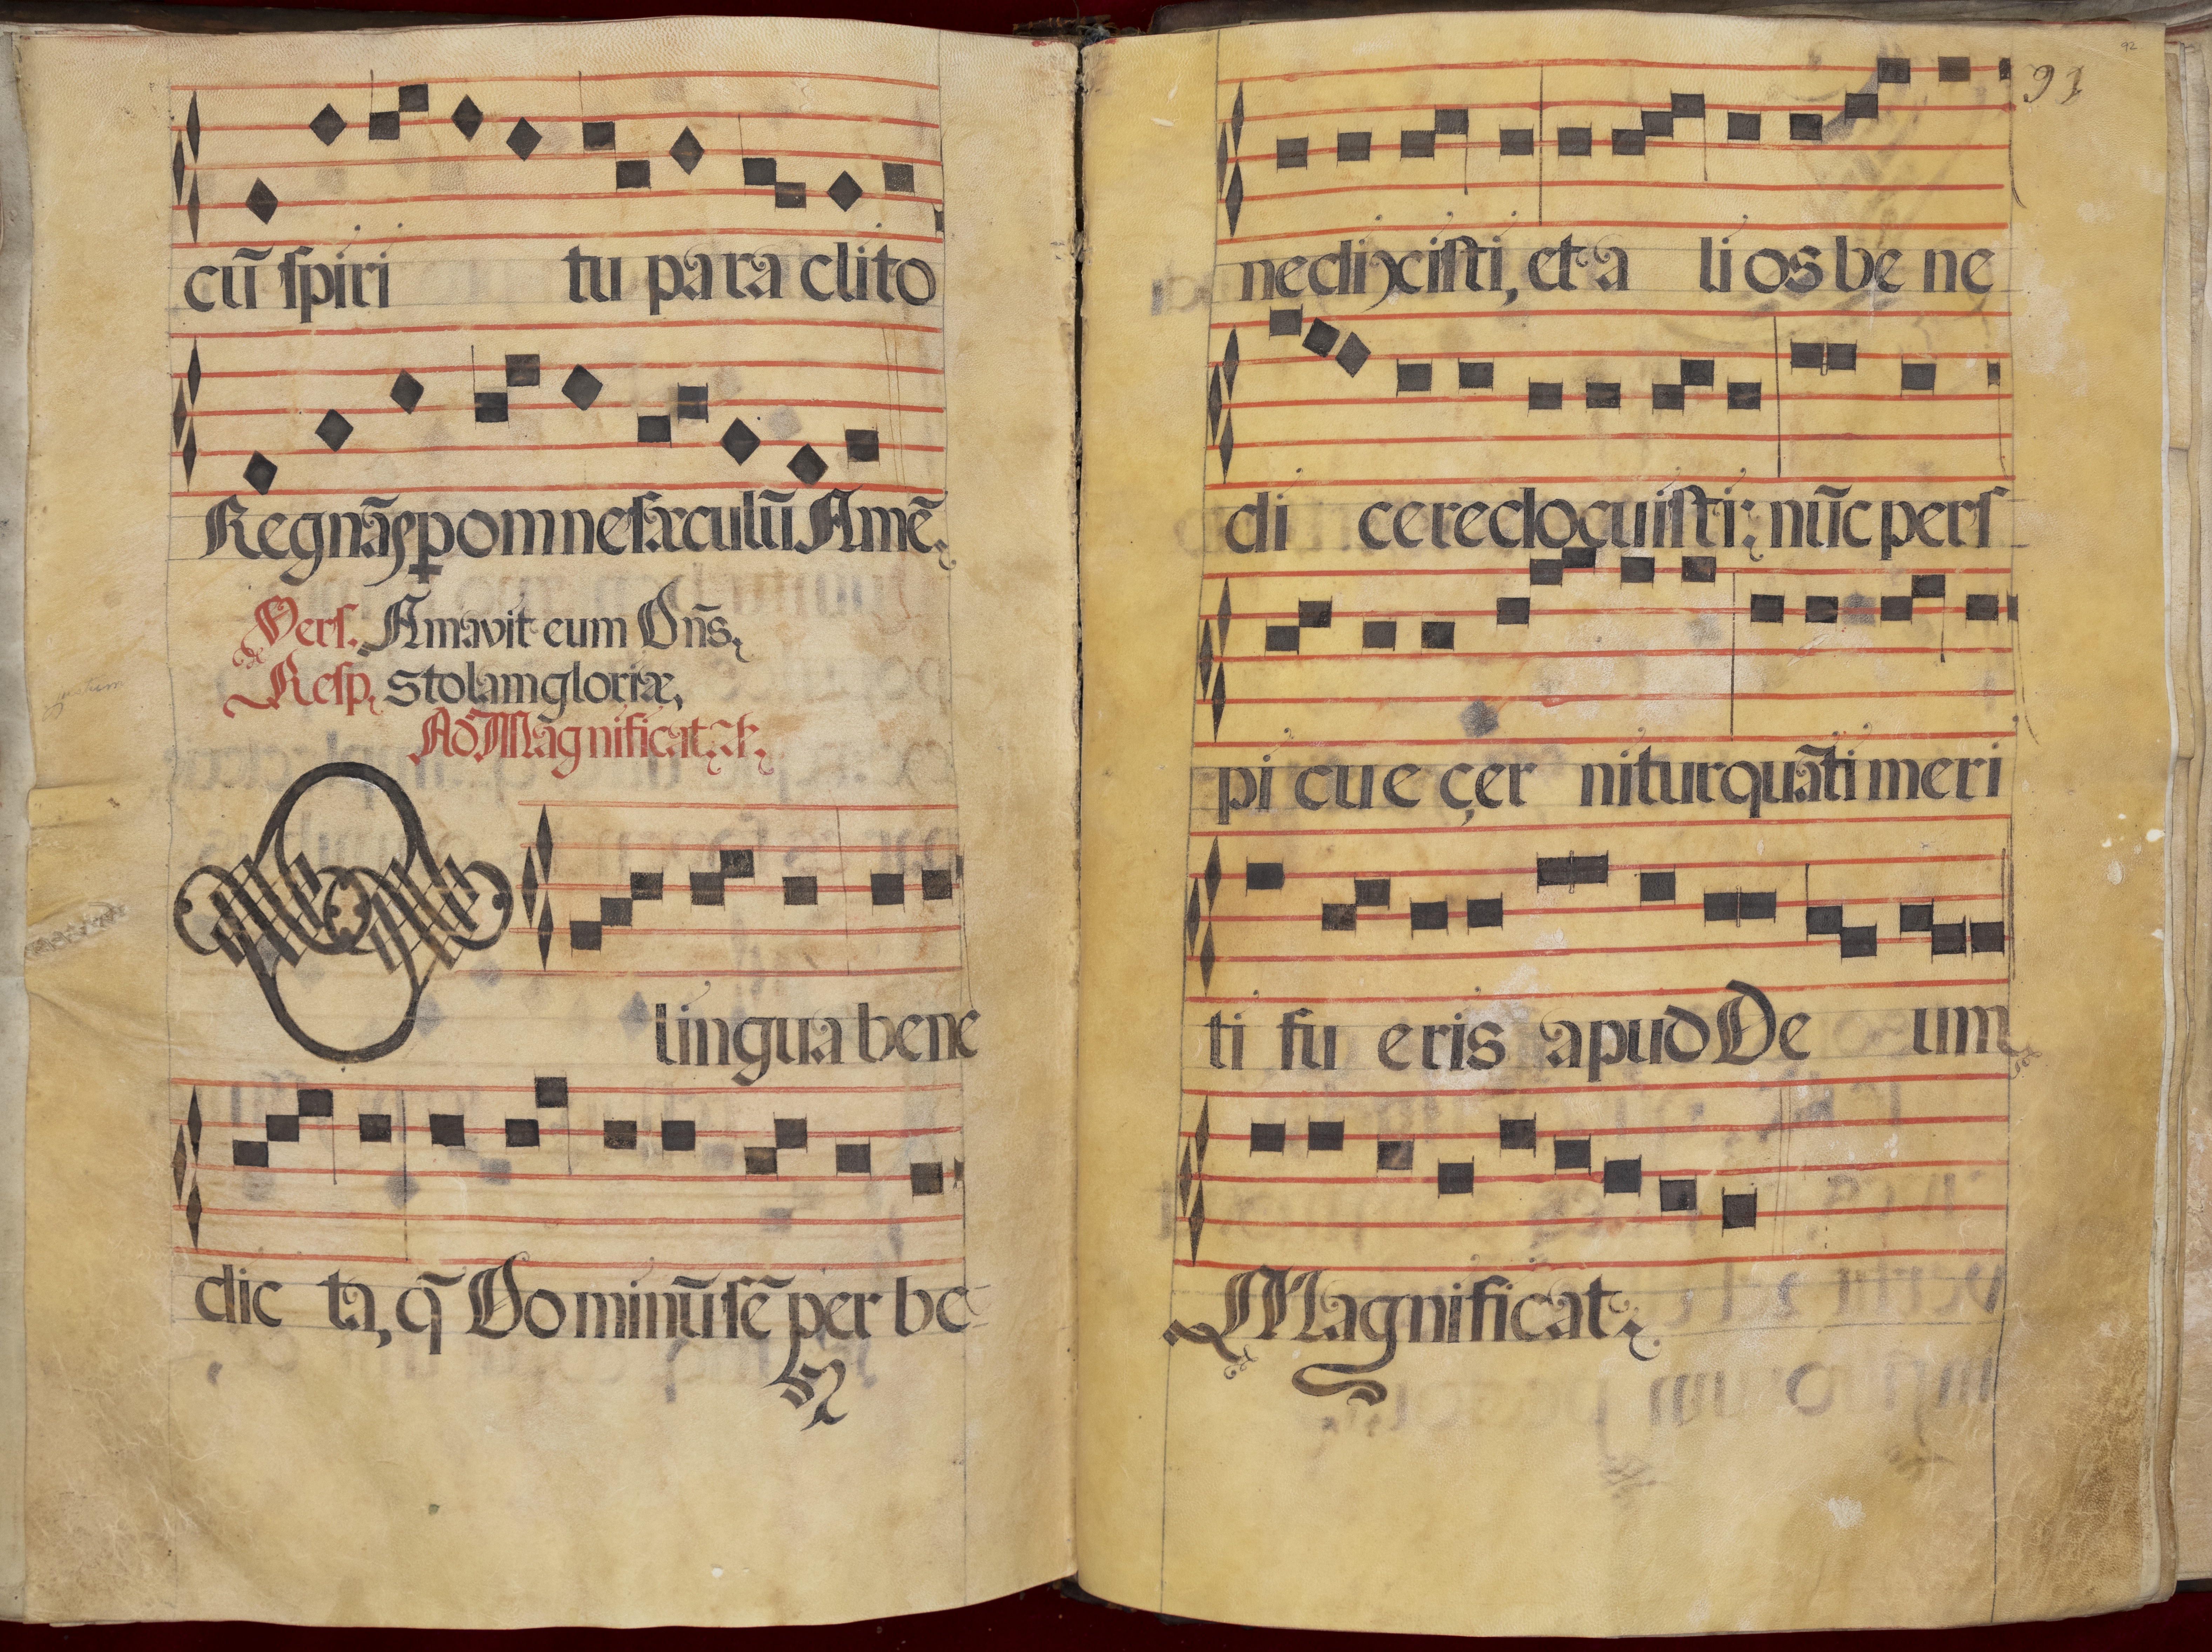 cū spiri tu pa ra clito
Regnās p omne sæculū Amē.
Vers. Amavit eum Dn̄s,
de
Resp. Stolam gloriæ,
Ad Magnificat. Añ.
O lingua bene
dic ta, q̄ Do minū sē per be
92
91
nedixisti, et a li os be ne
di cere docuisti: nūc pers
pi cue cer nitur quāti meri
ti fu eris apud De um
Magnificat.